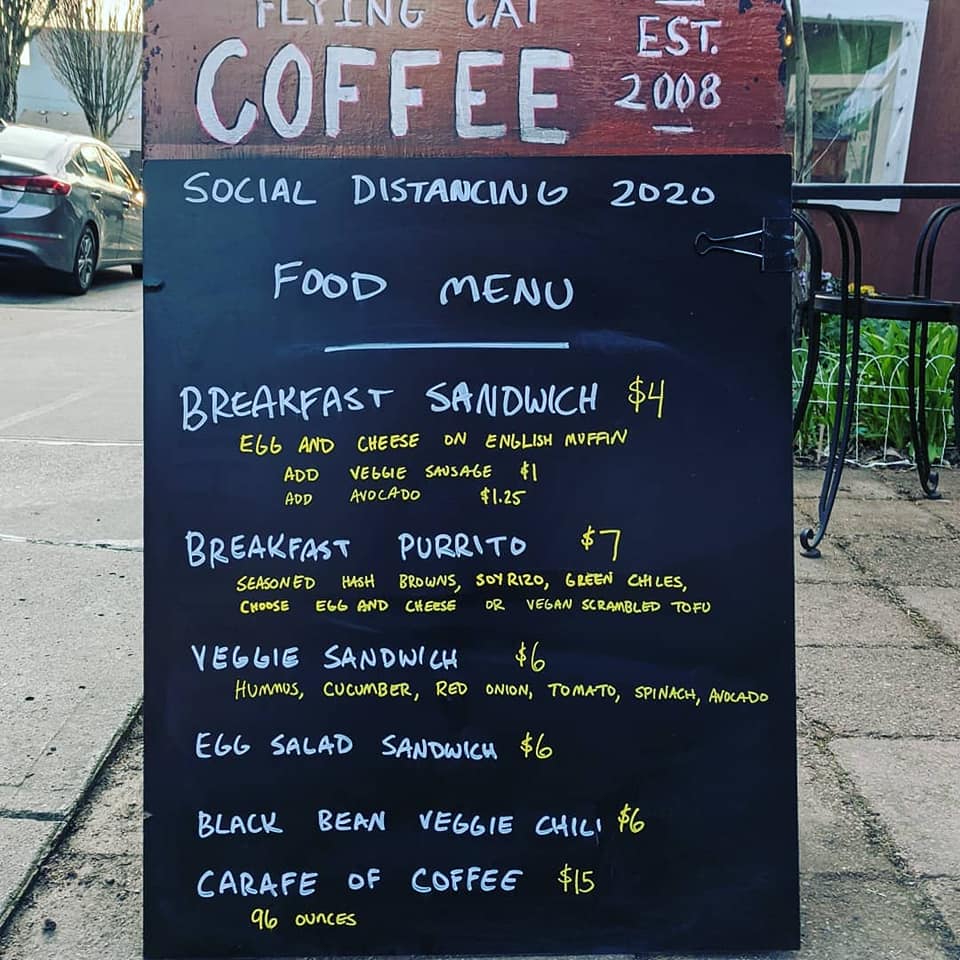 FLYING CAT
COFFEE
EST.
2008
SOCIAL DISTANCING 2020
FOOD MENU
BREAKFAST SANDWICH $4
EGG AND CHEESE ON ENGLISH MUFFIN
ADD VEGGIE SAUSAGE $1
ADD AVOCADO $1.25
BREAKFAST PURRITO $7
SEASONED HASH BROWNS, SOYRIZO, GREEN CHILES,
CHOOSE EGG AND CHEESE OR VEGAN SCRAMBLED TOFU
VEGGIE SANDWICH $6
HUMMUS, CUCUMBER, RED ONION, TOMATO, SPINACH, AVOCADO
EGG SALAD SANDWICH $6
BLACK BEAN VEGGIE CHILI $6
CARAFE OF COFFEE $15
96 OUNCES